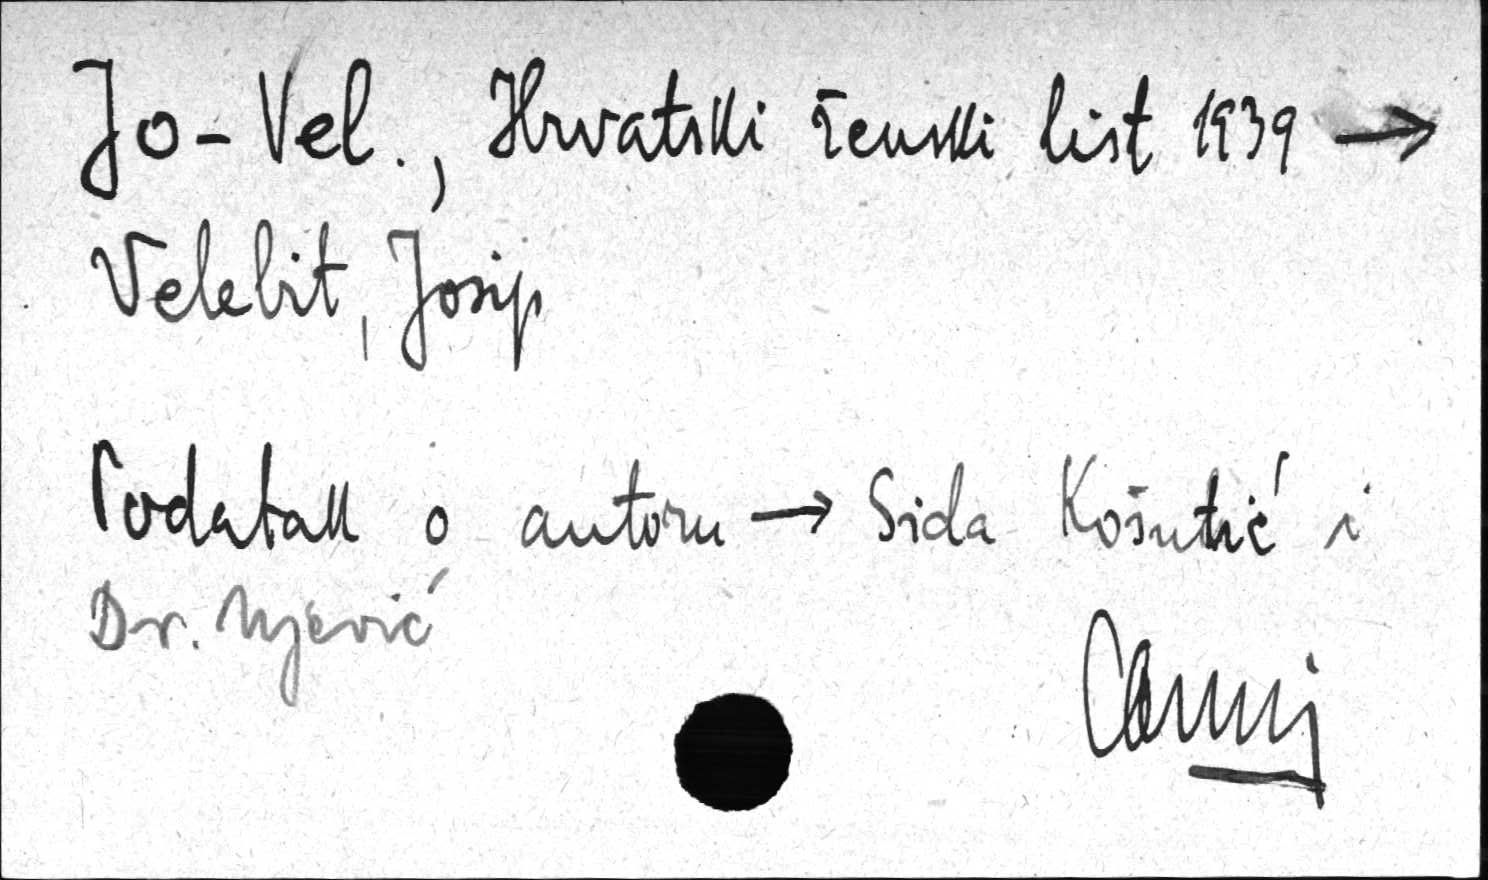 Jo-Vel., Hrvatski ženski list 1939 →
Velebit, Josip
Podatak o autoru → Sida Košutić i
Dr. Ujević